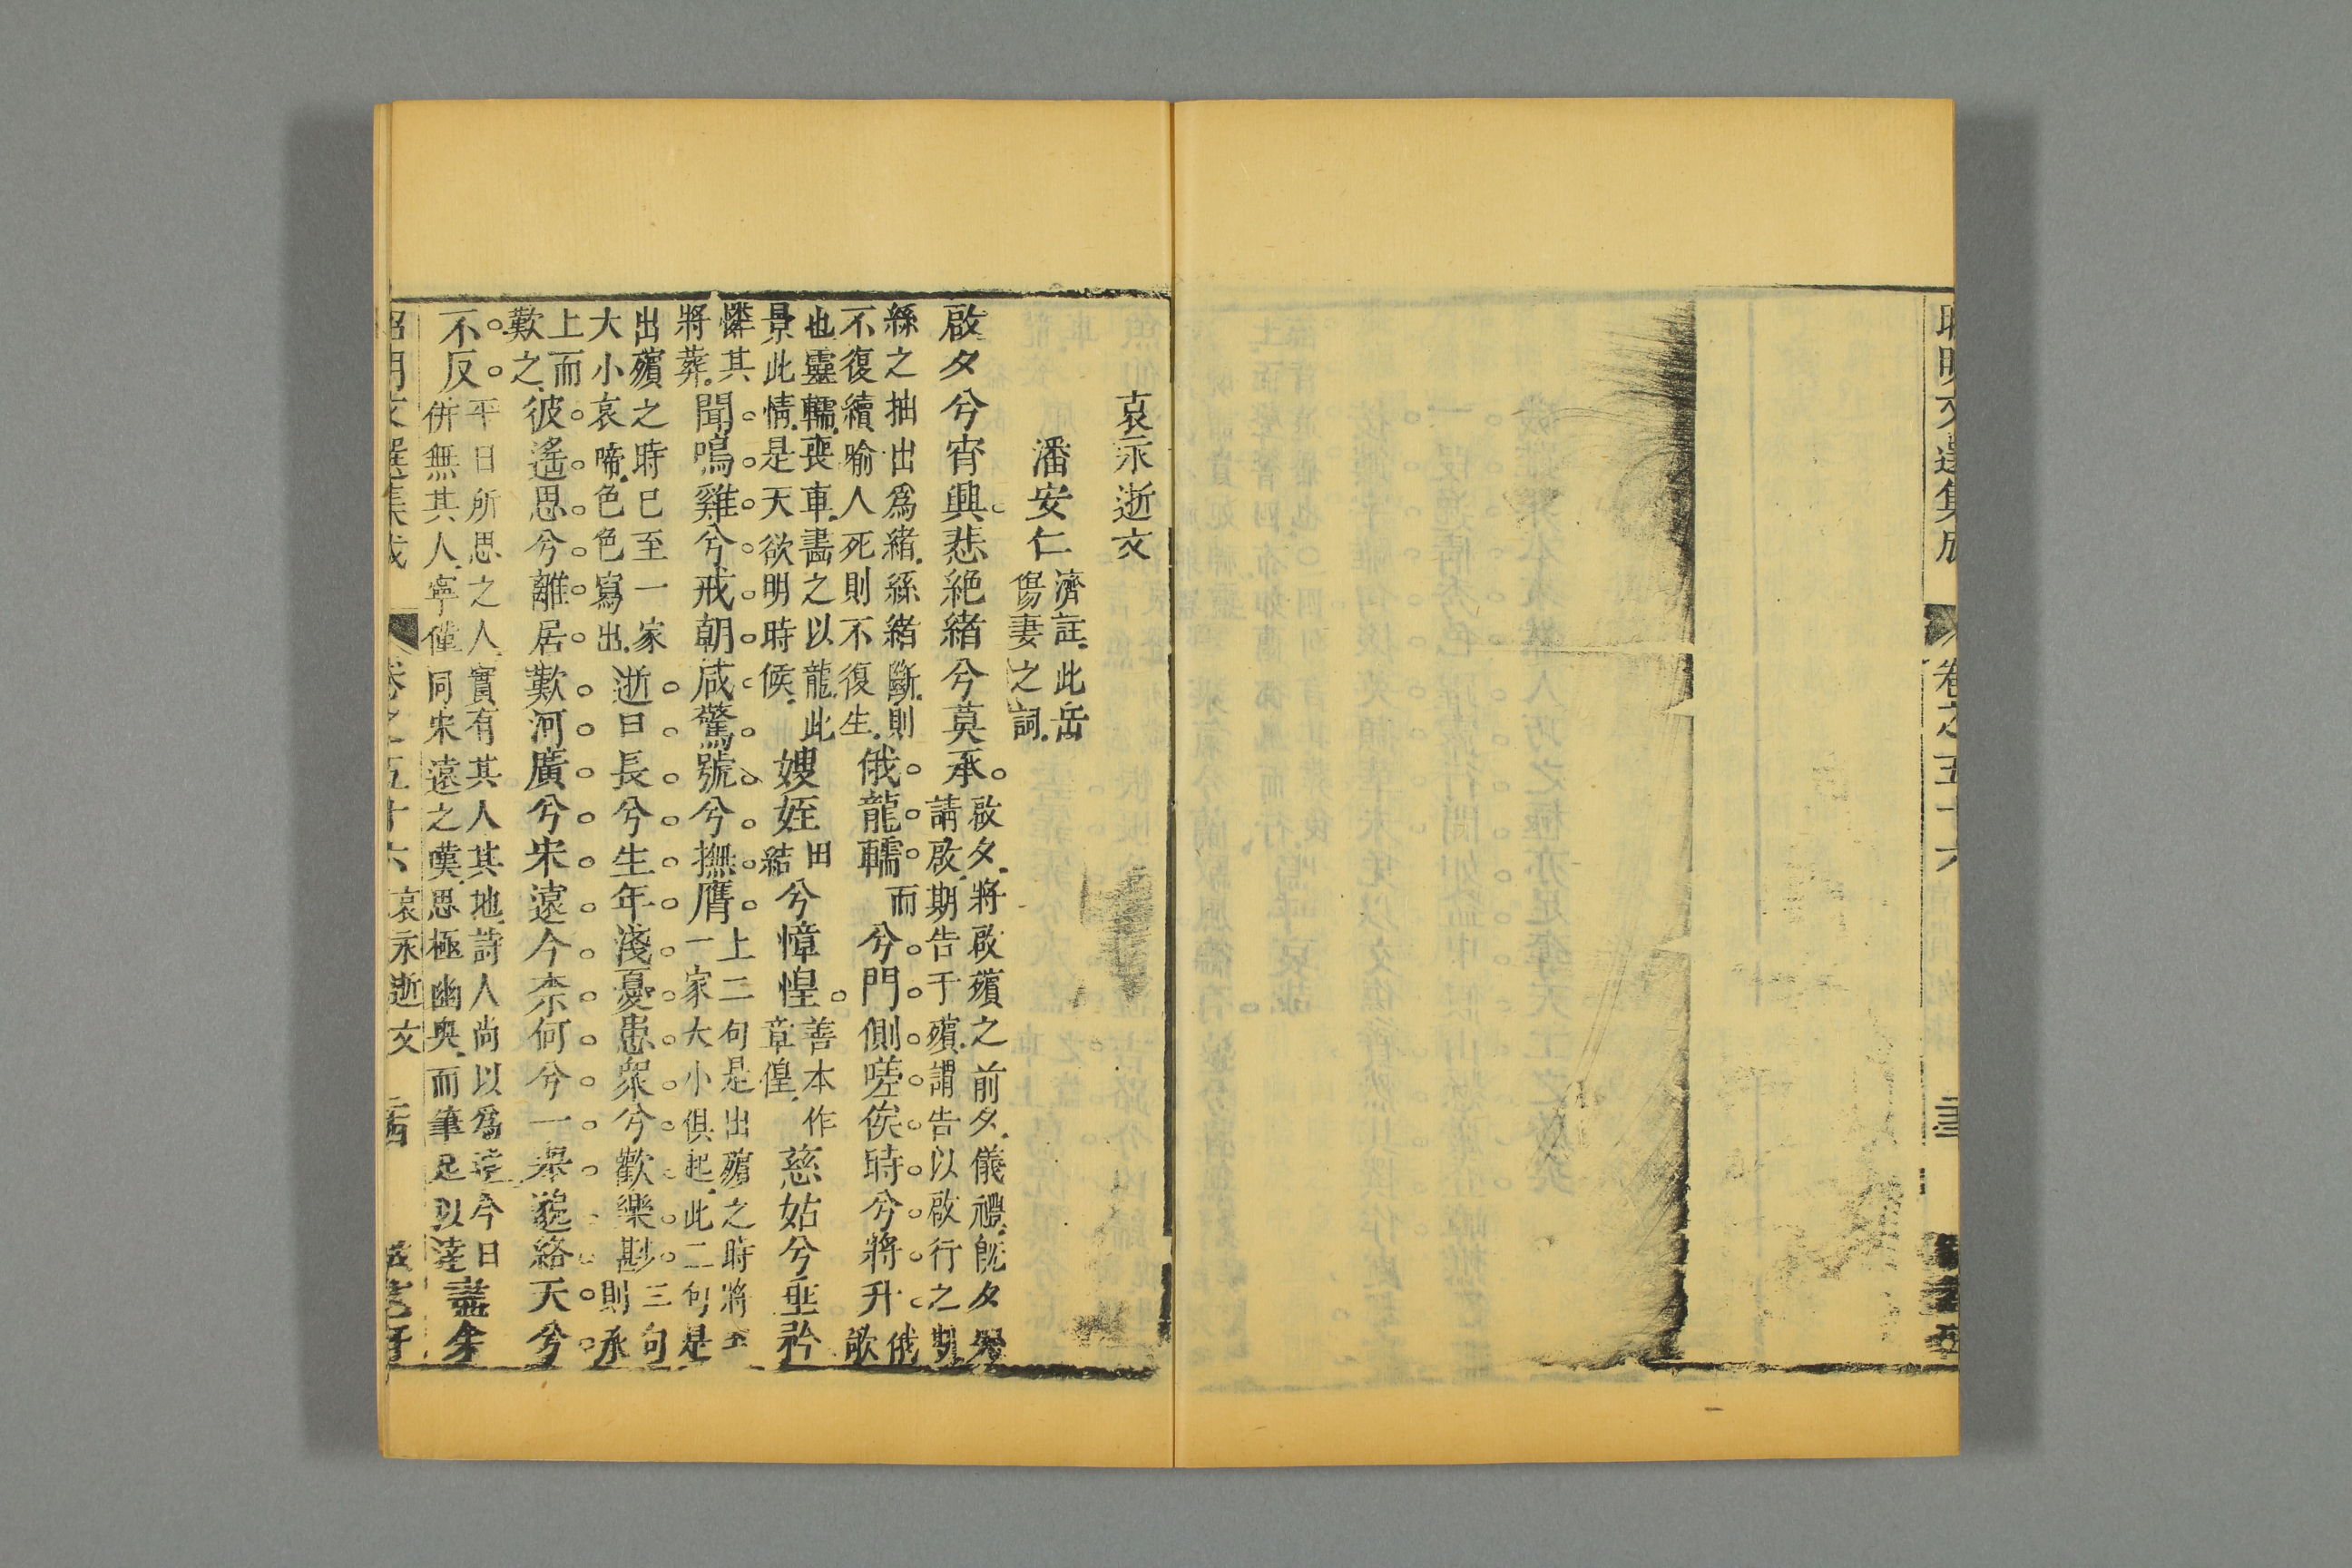 昭明文選集成 卷之五十六
哀永逝文
潘安仁 濟註此岳
傷妻之詞
啟夕兮宵興悲絶緒兮莫承 啟夕將啟殯之前夕儀禮旣夕
請啟期告于殯謂告以啟行之期
絲之抽出爲緒絲緒斷則
不復續喻人死則不復生 俄龍轜 而 兮門側嗟俟時兮將升 俄
歘
也靈轜喪車畵之以龍此
景此情是天欲明時候 嫂姪 田
結 兮慞惶 善本作
章偟 慈姑兮垂矜
憐其
將葬 聞鳴雞兮戒朝咸驚號兮撫膺 上二句是出殯之時將
一家大小俱起此二句是
出殯之時已至一家
大小哀啼色色寫出 逝日長兮生年淺憂患衆兮歡樂尠 三句
則承
上而
歎之 彼遙思兮離居歎河廣兮宋遠今柰何兮一舉邈終天兮
不反 平日所思之人實有其人其地詩人尚以爲遠今日
併無其人寧僅同宋遠之嘆思極幽奥而筆足以達 盡余
昭明文選集成 卷之五十六 哀永逝文